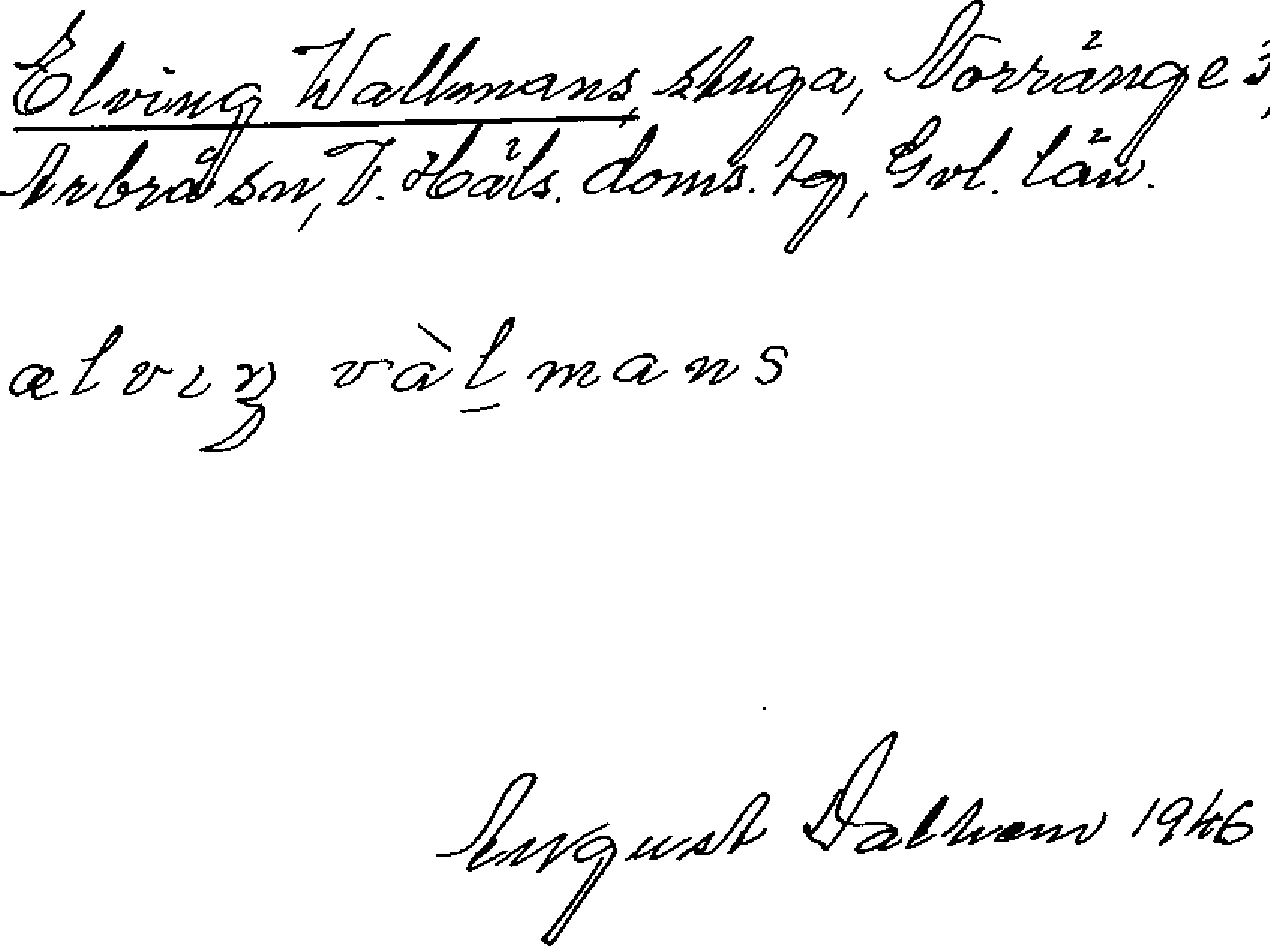 Elving Wallmans, stuga, Norränge 3,
Arbrå sn, V. Häls. doms. tg, Gvl. län.
ælvıŋ vàl̠mans
August 1946